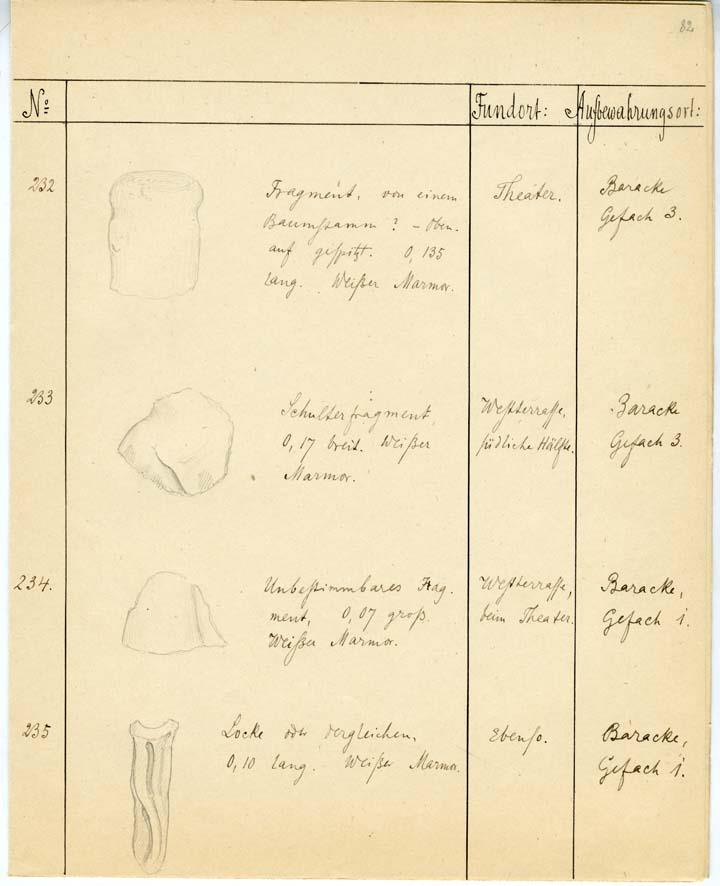 82
No Fundort: Aufbewahrungsort:
232 Fragment, von einem Theater. Baracke
Baumstamm? – Oben- Gefach 3.
auf gespitzt. 0,135
lang. Weißer Marmor.
233 Schulterfragment, Westterrasse, Baracke
0,17 breit. Weißer südliche Hälfte. Gefach 3.
Marmor.
234. Unbestimmbares Frag- Westterrasse, Baracke,
ment, 0,07 groß. beim Theater. Gefach 1.
Weißer Marmor.
235 Locke oder dergleichen, Ebenso. Baracke,
0,10 lang. Weißer Marmor. Gefach 1.